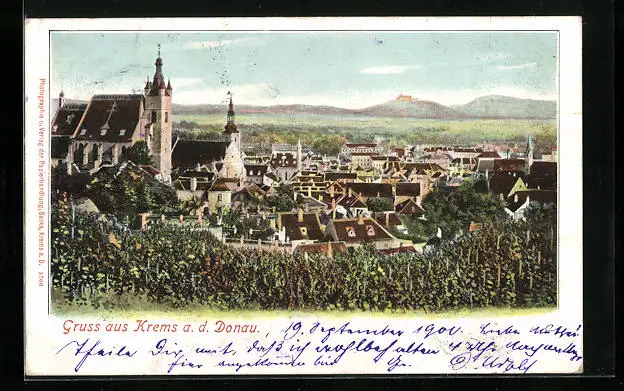 Photographie u. Verlag der Papierhandlung Saska, Krems a. D. 5266
Gruss aus Krems a. d. Donau.
19. September 1900. Liebe Mutter!
Theile Dir mit, daß ich wohlbehalten 4 Uhr
hier angekommen bin Adolf